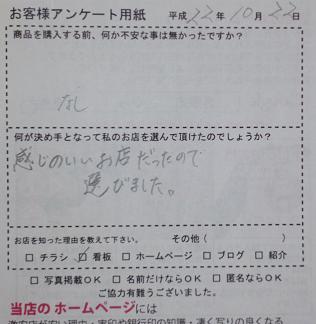 お客様アンケート用紙 平成22年10月22日
商品を購入する前、何か不安な事は無かったですか?
なし
何が決め手となって私のお店を選んで頂けたのでしょうか?
感じのいいお店だったので
選びました。
お店を知った理由を教えて下さい。 その他( )
□ チラシ ☑ 看板 □ ホームページ □ ブログ □ 紹介
□ 写真掲載OK □ 名前だけならOK □ 匿名ならOK
ご協力有難うございました。
当店の ホームページには
激安店が安い理由・実印や銀行印の知識・凄く写りの良くなる